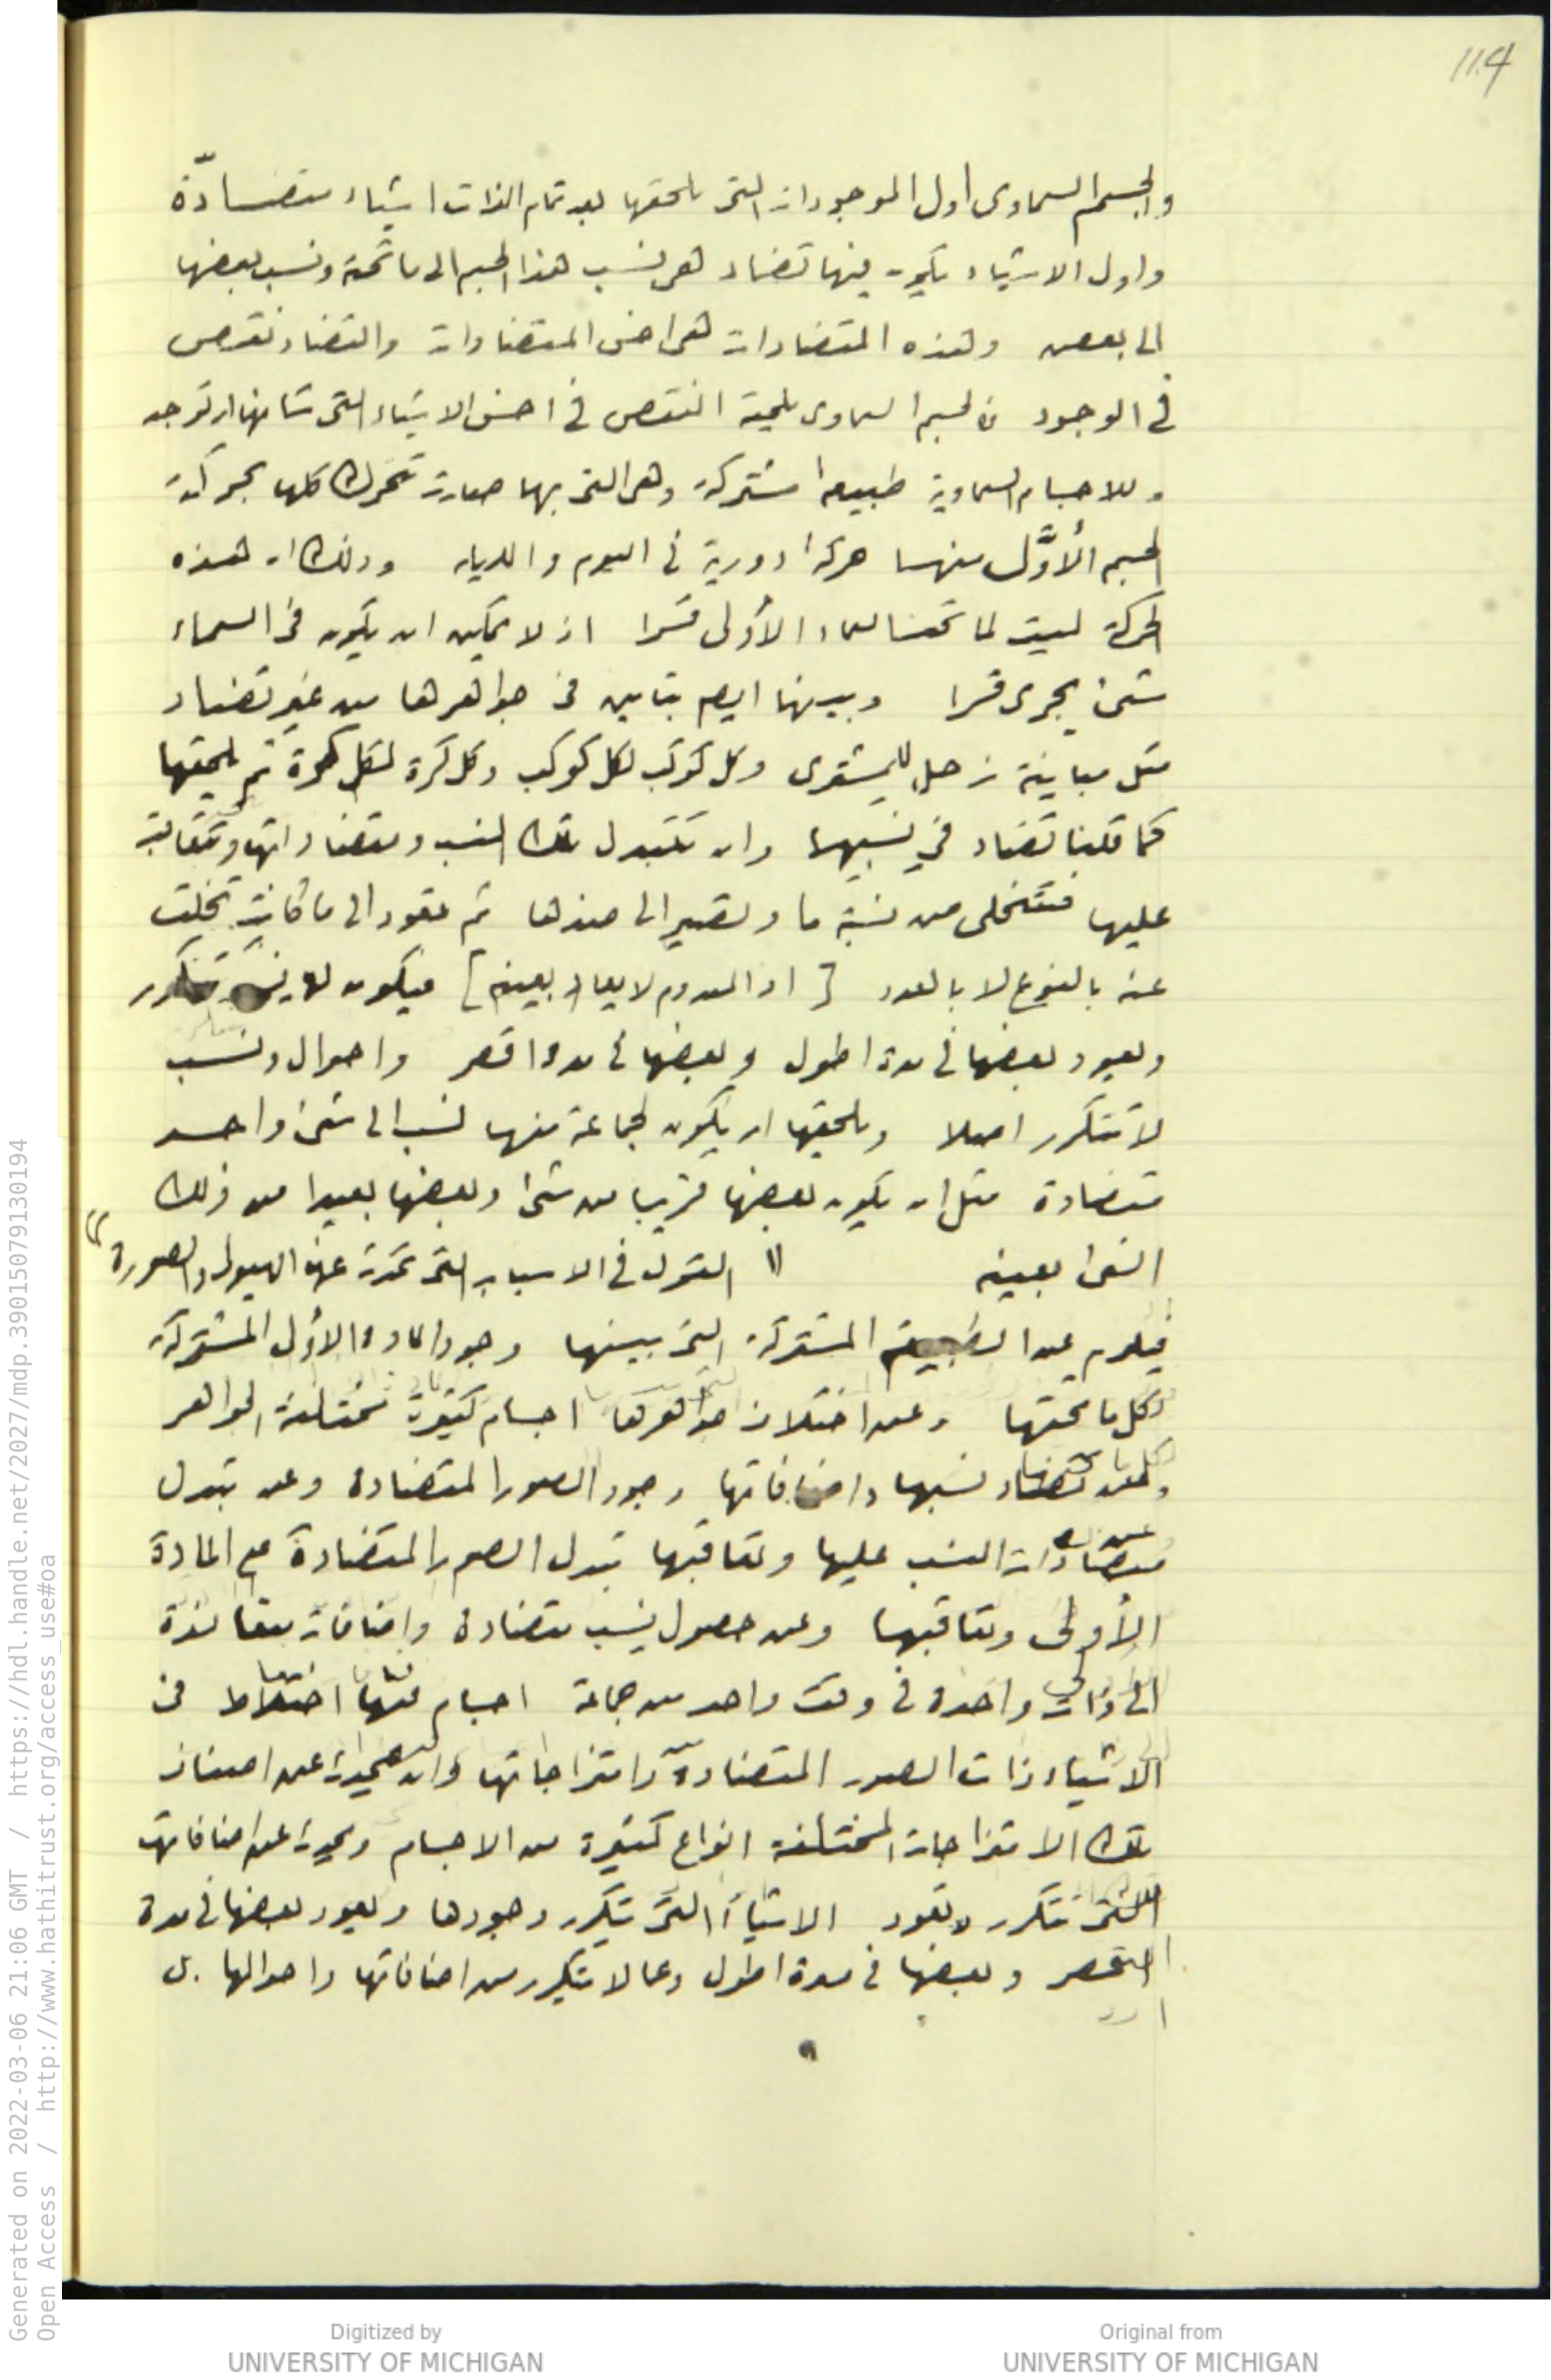 114
والجسم السماوى اول الموجودات التى تلحقها بعد تمام الذات اشياء متضادّة
واول الاشياء يكون فيها تضاد هى نسب هذا الجسم الى ما تحته ونسب بعضها
الى بعض وهذه المتضادات هى اخس المتضادات والتضاد نقص
فى الوجود فالجسم السماوى يلحقه النقص فى اخس الاشياء التى شانها ان توجد
وللاجسام السماوية طبيعة مشتركة وهى التى بها صارت تتحرك كلها بحركة
الجسم الأوَّل منها حركة دورية فى اليوم والليلة وذلك ان هذه
الحركة ليست لما تحت السماء الأولى قسرا اذ لا يمكن ان يكون فى السماء
شىء يجرى قسرا وبينها ايضا تباين فى جواهرها من غير تضاد
مثل مباينة زحل للمشترى وكل كوكب لكل كوكب وكل كرة لكل كرة ثم يلحقها
كما قلنا تضاد فى نسبها وان تتبدل تلك النسب ومتضاداتها وتتعاقب
عليها فتتخلى من نسبة ما وتصير الى ضدها ثم تعود الى ما كانت تخلت
عنه بالنوع لا بالعدد [ اذ المعدوم لا يعاد بعينه ] فيكون لها نسب تتكرر
ويعود بعضها فى مدة اطول وبعضها فى مدة اقصر واحوال ونسب
لا تتكرر اصلا ويلحقها ان يكون لجماعة منها نسب الى شىء واحد
متضادة مثل ان يكون بعضها قريبا من شىء وبعضها بعيدا من ذلك
الشىء بعينه " القول فى الاسباب التى تحدث عنها الهيولى والصورة "
فيلزم عن الطبيعة المشتركة التى بينها وجود المادة الأولى المشتركة
لكل ما تحتها وعن اختلاف جواهرها اجسام كثيرة مختلفة الجواهر
وعن تضاد نسبها واضافاتها وجود الصور المتضادة وعن تبدل
متضادات النسب عليها وتعاقبها تبدل الصور المتضادة على المادة
الأولى وتعاقبها وعن حصول نسب متضادة واضافات متعاندة
الى ذات واحدة فى وقت واحد من جماعة اجسام فيها اختلاط فى
الاشياء ذات الصور المتضادة وامتزاجاتها وان يحدث عن اصناف
تلك الامتزاجات المختلفة انواع كثيرة من الاجسام ويحدث عن اضافاتها
التى تتكرر وتعود الاشياء التى يتكرر وجودها ويعود بعضها فى مدة
اقصر وبعضها فى مدة اطول وعما لا يتكرر من اضافاتها واحوالها بل
Generated on 2022-03-06 21:06 GMT / https://hdl.handle.net/2027/mdp.39015079130194
Open Access / http://www.hathitrust.org/access_use#oa
Digitized by
UNIVERSITY OF MICHIGAN
Original from
UNIVERSITY OF MICHIGAN